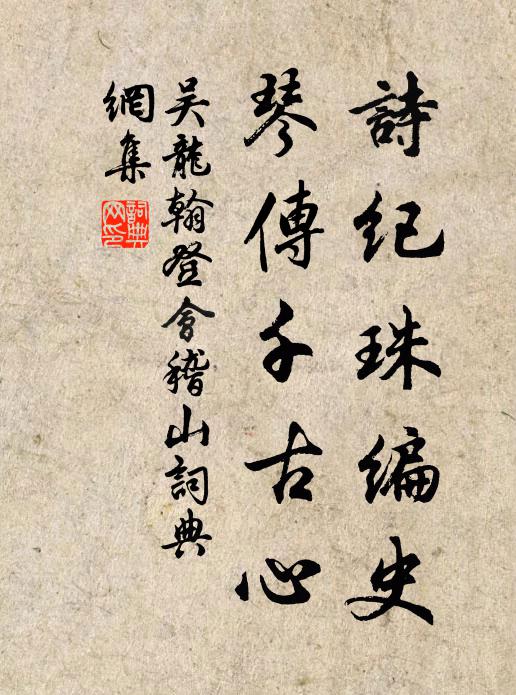 詩紀珠編史
琴傳千古心
吳龍翰登會稽山詞典
網集
詞典
网印